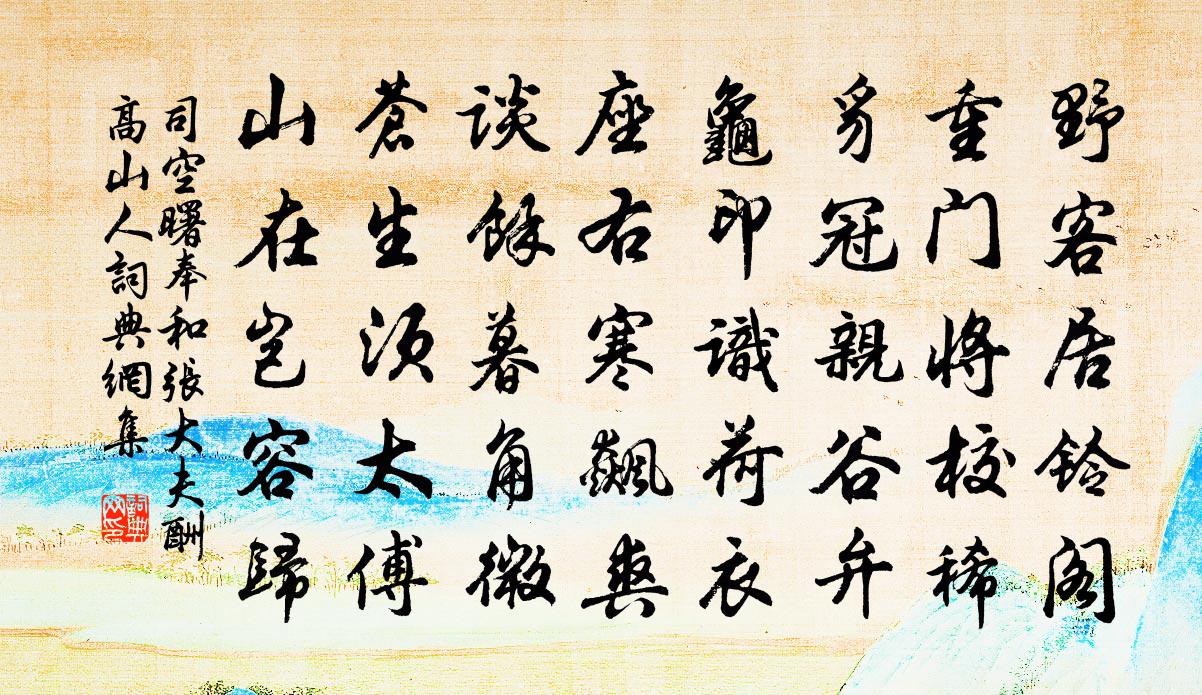 野客居铃阁
重门将校稀
豸冠親谷弁
龜印識荷衣
座右寒飙爽
谈餘暮角微
蒼生须太傅
山在岂容歸
司空曙奉和張大夫酬
高山人詞典網集